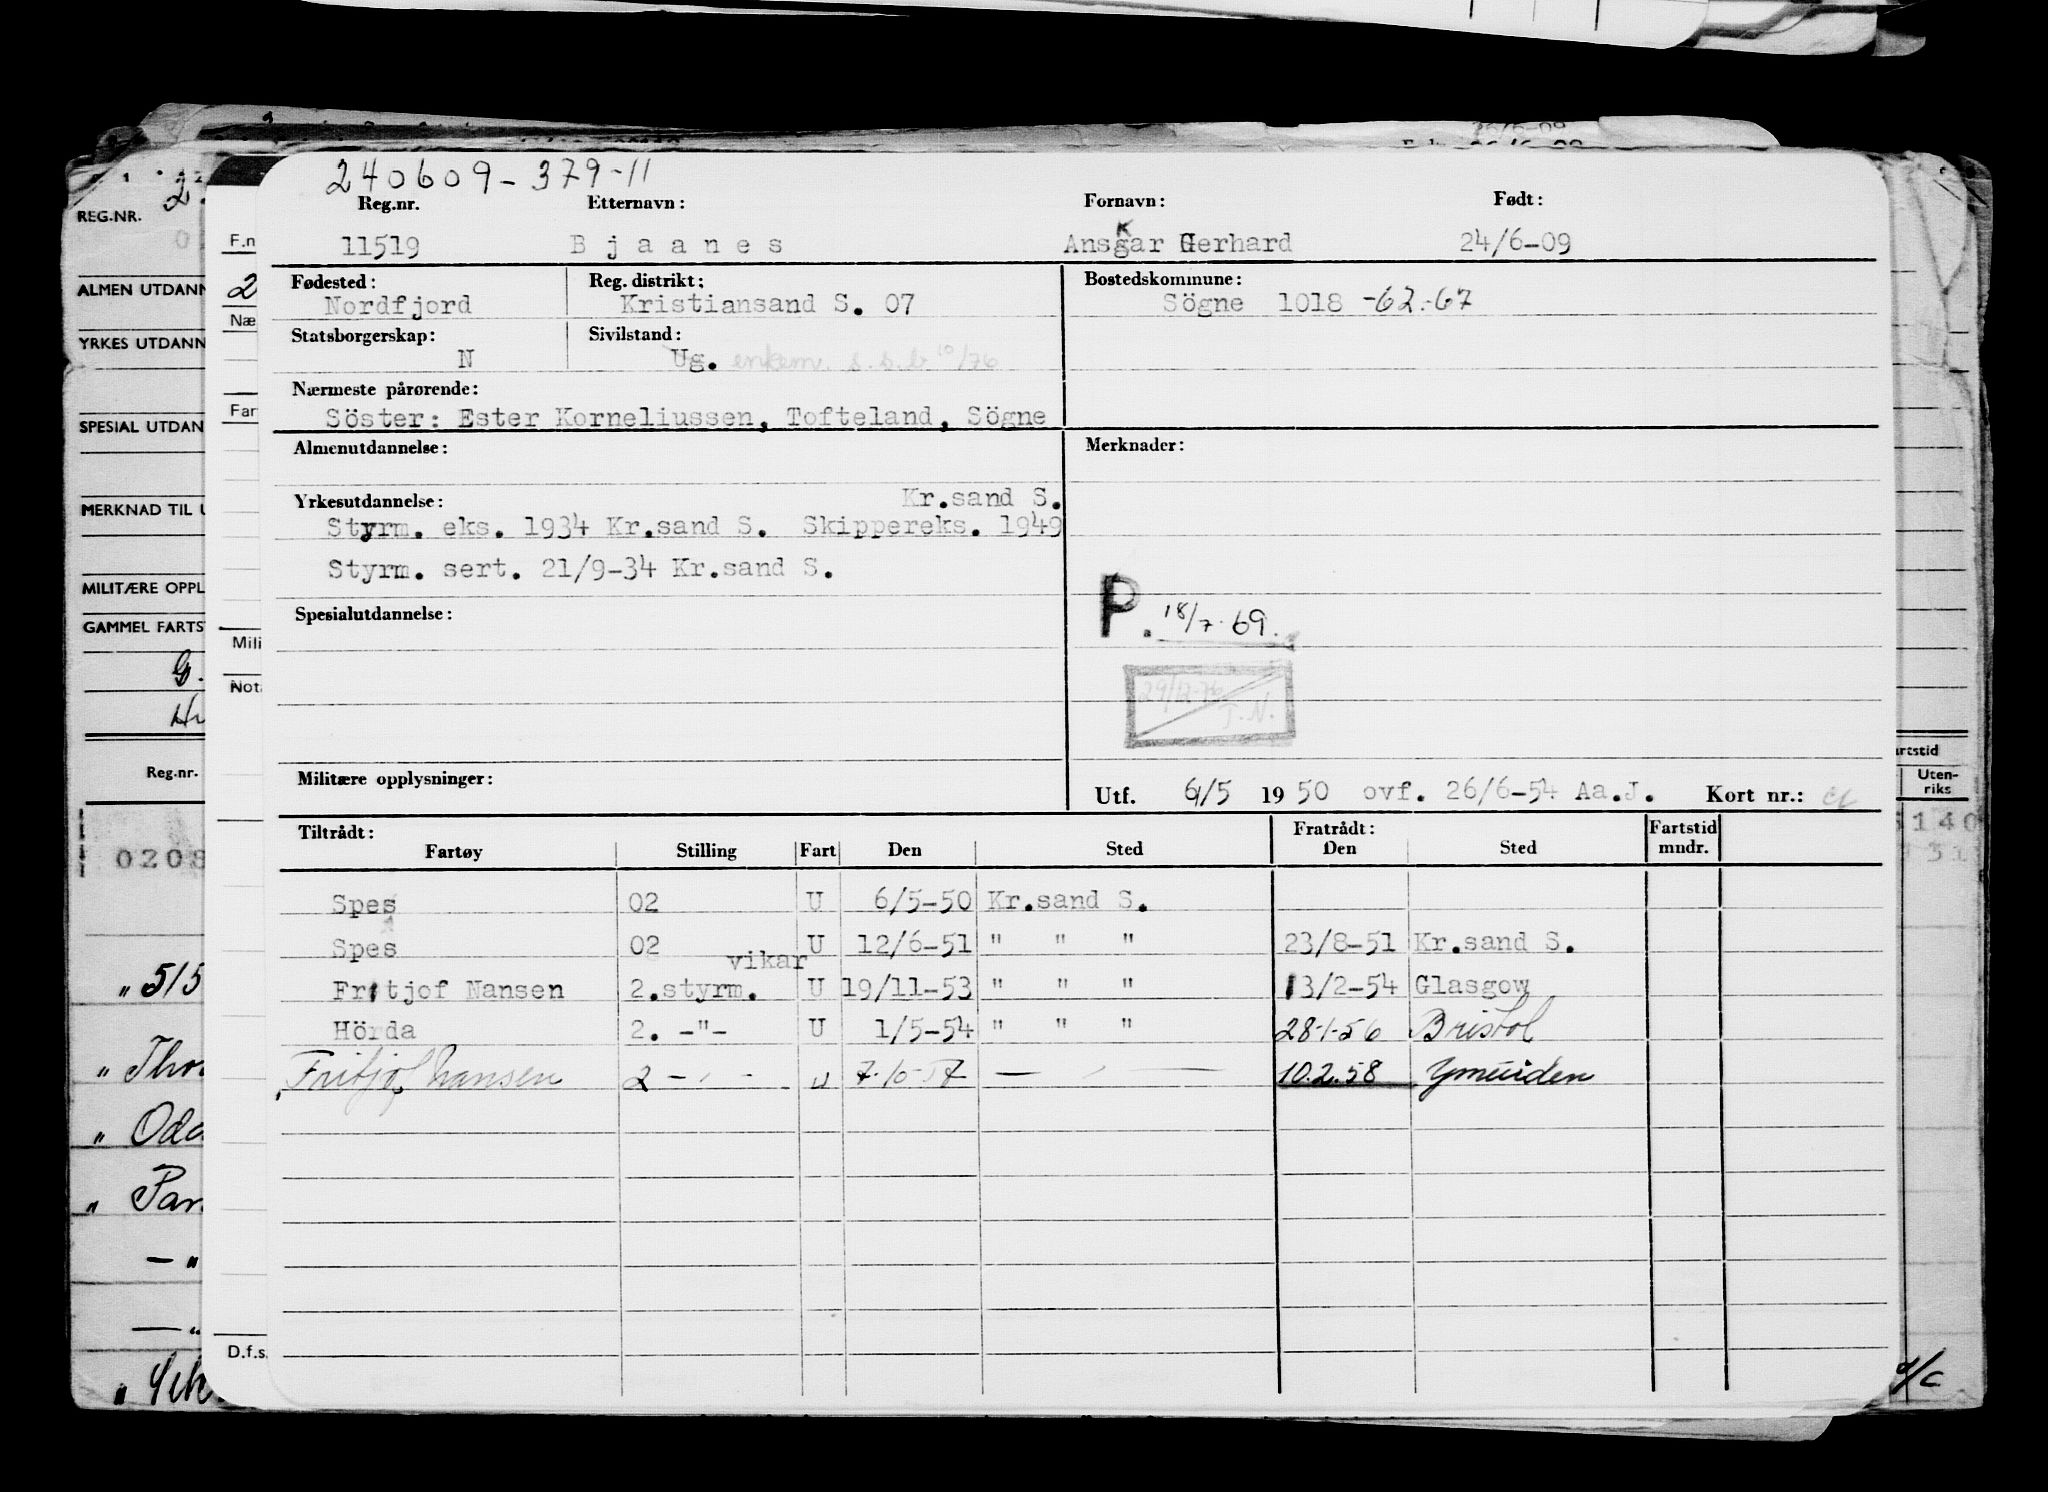 240609-379-11
Reg.nr. Etternavn: Fornavn: Født:
11519 Bjaanes Ansgar Gerhard 24/6-09
K
Fødested: Reg. distrikt: Bostedskommune:
Nordfjord Kristiansand S. 07 Sögne 1018 -62.-67
Statsborgerskap: Sivilstand:
N Ug. enkem. s.s.b 10/76
Nærmeste pårørende:
Söster: Ester Korneliussen, Tofteland, Sögne
Almenutdannelse: Merknader:
Yrkesutdannelse: Kr.sand S.
Styrm. eks. 1934 Kr.sand S. Skippereks. 1949
Styrm. sert. 21/9-34 Kr.sand S.
P. 18/7-69.
Spesialutdannelse:
29/12-76
T.N.
Militære opplysninger:
Utf. 6/5 1950 ovf. 26/6-54 Aa.J. Kort nr.:
Tiltrådt: Fratrådt: Fartstid
Fartøy Stilling Fart Den Sted Den Sted mndr.
Spes 02 U 6/5-50 Kr.sand S.
Spes 02 U 12/6-51 " " " 23/8-51 Kr.sand S.
vikar
Fritjof Nansen 2.styrm. U 19/11-53 " " " 13/2-54 Glasgow
Hörda 2. -"- U 1/5-54 " " " 28-1-56 Bristol
Fritjof Nansen 2 - " - U 7-10-57 — " — 10.2.58 Ymuiden
REG.NR. 2
ALMEN UTDANN
YRKES UTDANN
SPESIAL UTDAN
MERKNAD TIL U
MILITÆRE OPPL
GAMMEL FARTS
G.
Reg.nr.
0208
" 515
" Tho
" Oda
" Par
— "
— "
F.n
2
Næ
Far
Mili
Nota
D.f.s.
artstid
Uten-
riks
140
31
26/6-09